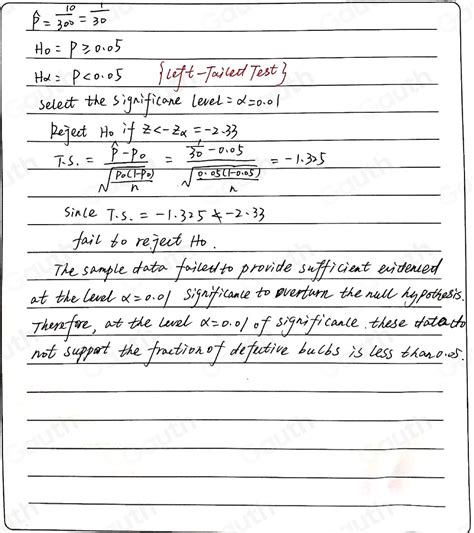 p̂ = 10/300 = 1/30
H₀ = P ≥ 0.05
Hα = P < 0.05 {left-Tailed Test}
select the significane level = α = 0.01
Reject H₀ if z < -zα = -2.33
T.S. = (p̂ - p₀) / √(p₀(1-p₀)/n) = (1/30 - 0.05) / √(0.05(1-0.05)/n) = -1.325
Sinle T.S. = -1.325 ≮ -2.33
fail to reject H₀.
The sample data failed to provide sufficient evidenced
at the level α=0.01 significance to overturn the null hypothesis.
Therefore, at the level α=0.01 of significance these data do
not support the fraction of defective bulbs is less than 0.05.